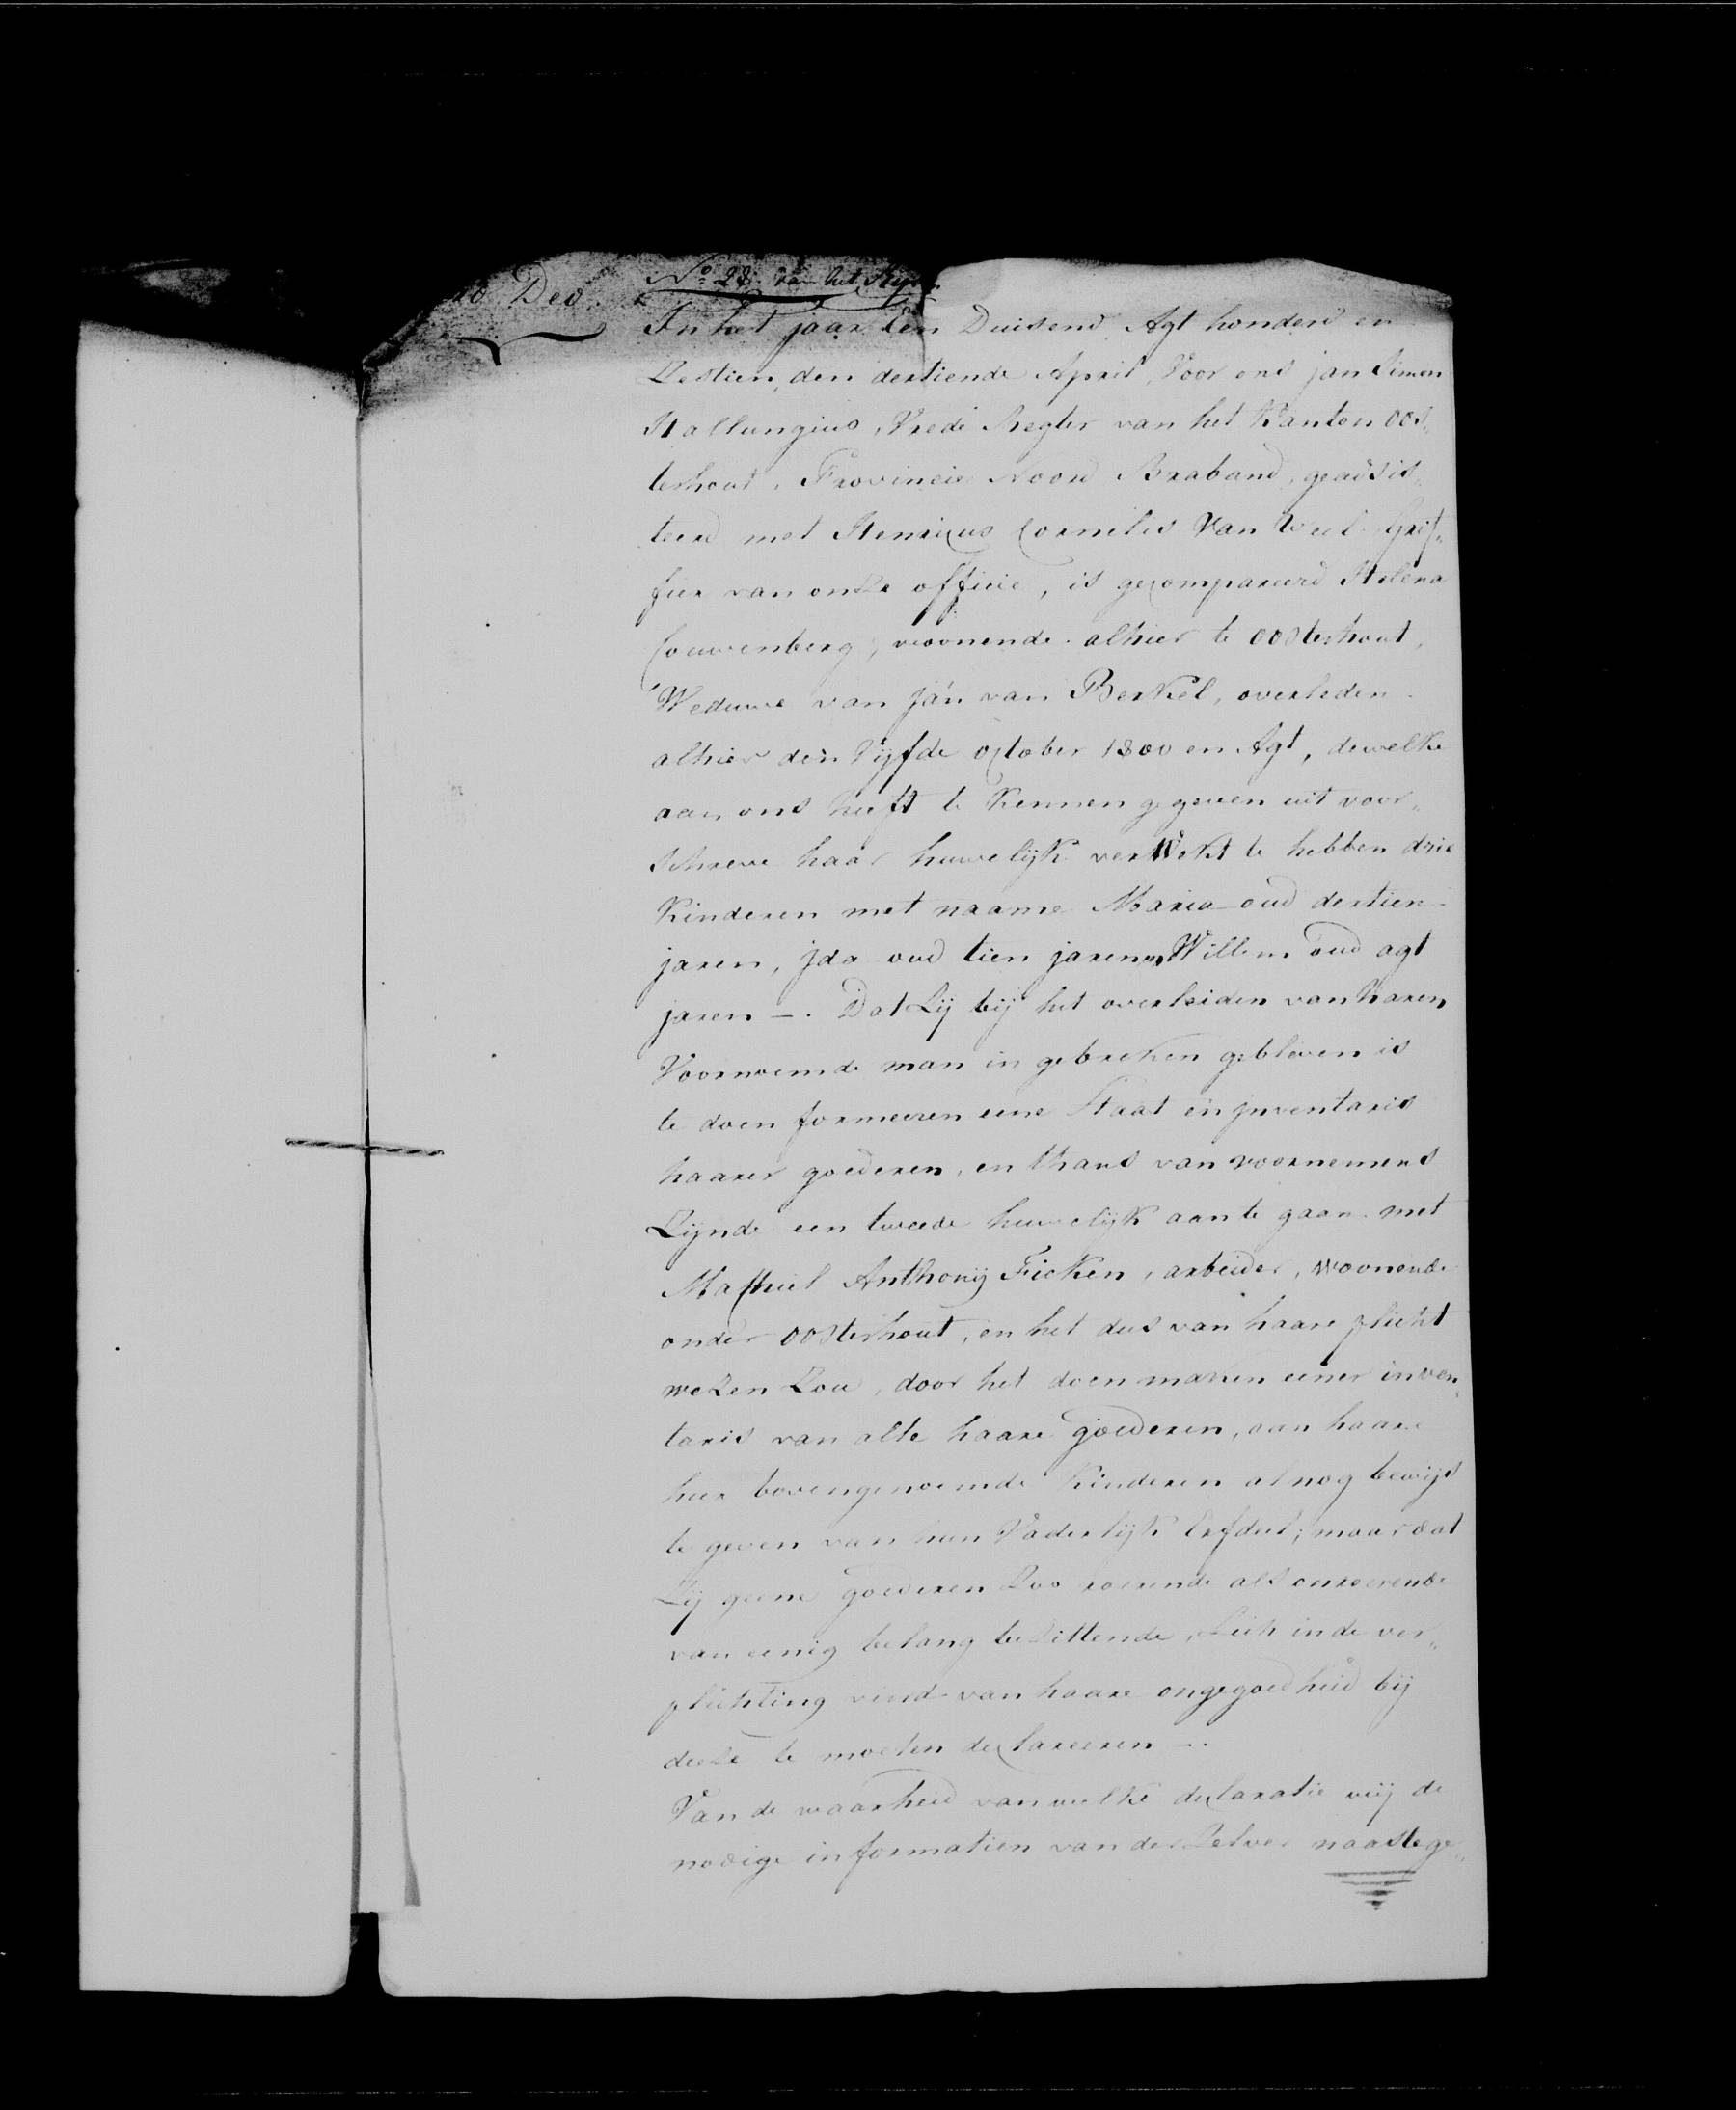 Deo.
No. 28. van het Repert.
In het jaar Een Duisend Agt honderd en
Zestien, den dertiende April, Voor ons jan Simon
Hallungius, Vrede Regter van het Kanton Oos„
terhout, Provincie Noord Braband, geadsis„
teerd met Henricus Cornelis Van Weel Grif„
fier van onze officie, is gecompareerd Helena
Couwenberg, woonende alhier te Oosterhout,
Weduwe van Jan van Berkel, overleden
alhier den Vijfde October 1800 en Agt, dewelke
aan ons heeft te kennen gegeven uit voor„
schreve haar huwelijk verwekt te hebben drie
Kinderen met naame Maria oud dertien
jaren, Jda oud tien jaren en Willem oud agt
jaren —. Dat Zij bij het overleiden van haren
Voornoemde man in gebreken gebleven is
te doen formeeren eene Staat en jnventaris
haarer goederen, en thans van voornemens
Zijnde een tweede huwelijk aan te gaan met
Machiel Anthonij Ficken, arbeider, woonende
onder Oosterhout, en het dus van haare plicht
wezen Zou, door het doen maken eener inven„
taris van alle haare goederen, aan haare
hier bovengenoemde Kinderen alnog bewijs
te geven van hun Vaderlijk Erfdeel; maar dat
Zij geene goederen Zoo roerende als onroerende
van eenig belang bezittende, Zich in de ver„
plichting vind van haare ongegoedheid bij
deeze te moeten declareeren —.
Van de waarheid van welke declaratie wij de
nodige informatien van der Zelver naastege„